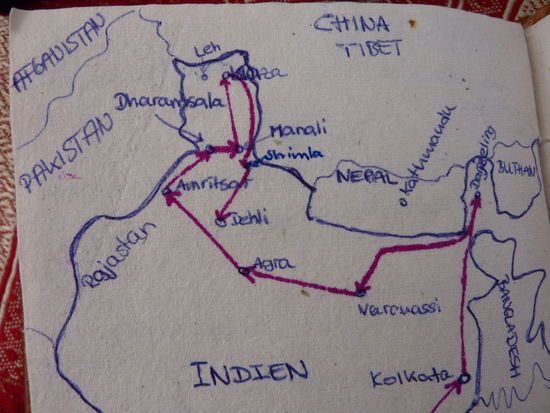 AFGANISTAN
CHINA
TIBET
Leh
Kaza
Dharamsala
PAKISTAN
Manali
Shimla
NEPAL
Kathmandu
Darjeeling
BUTHAN
Amritsar
Dehli
Rajastan
Agra
Varanassi
BANGLADESH
INDIEN
Kolkata